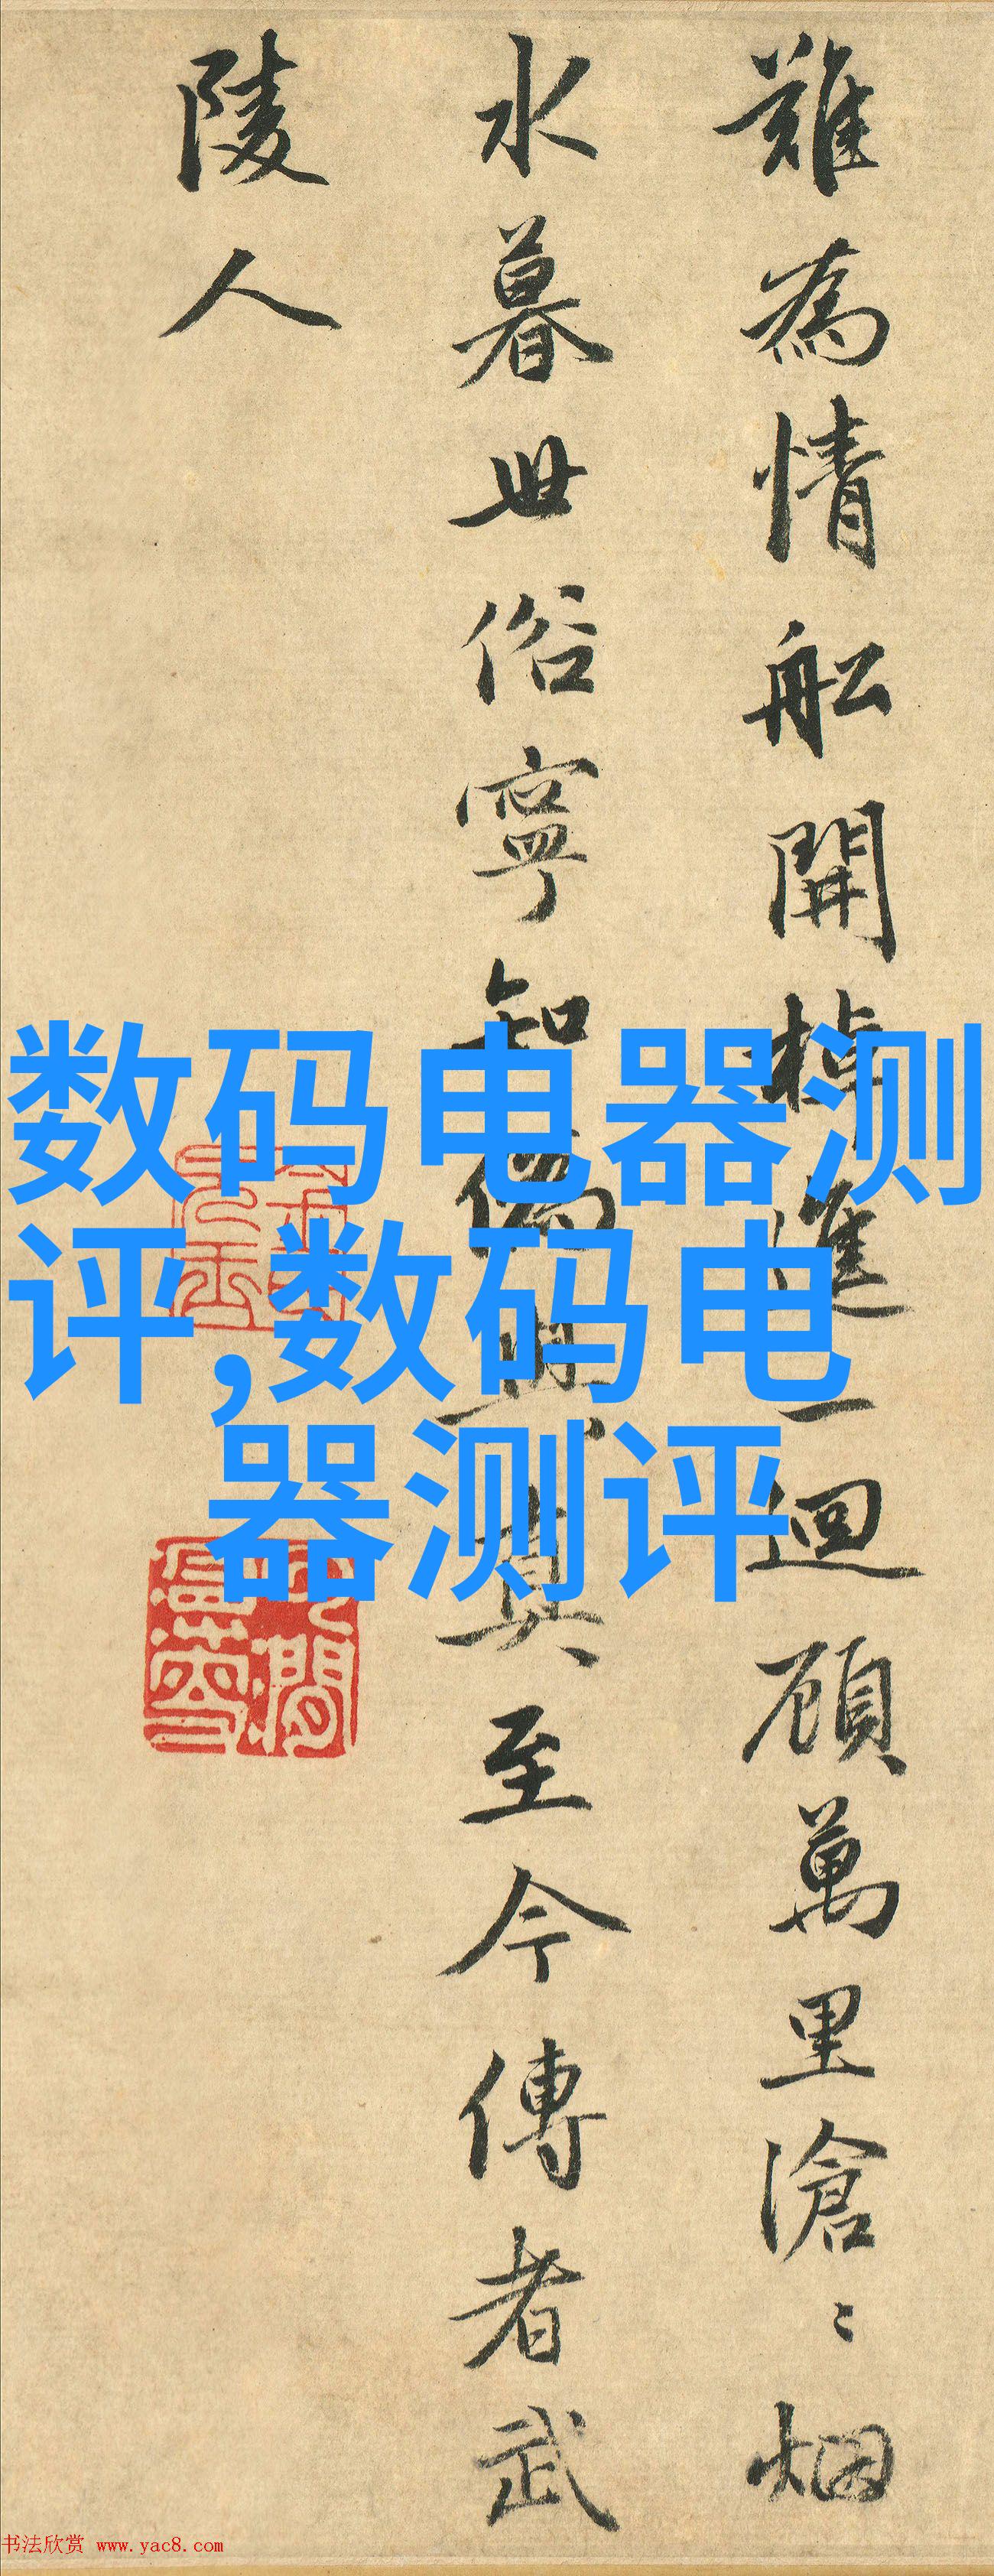 難為情船開棹進一迴顧萬里滄〻烟
水暮世俗寧知偽與真至今傳者武
陵人
数码电器测
评,数码电
器测评
书法欣赏 www.yac8.com